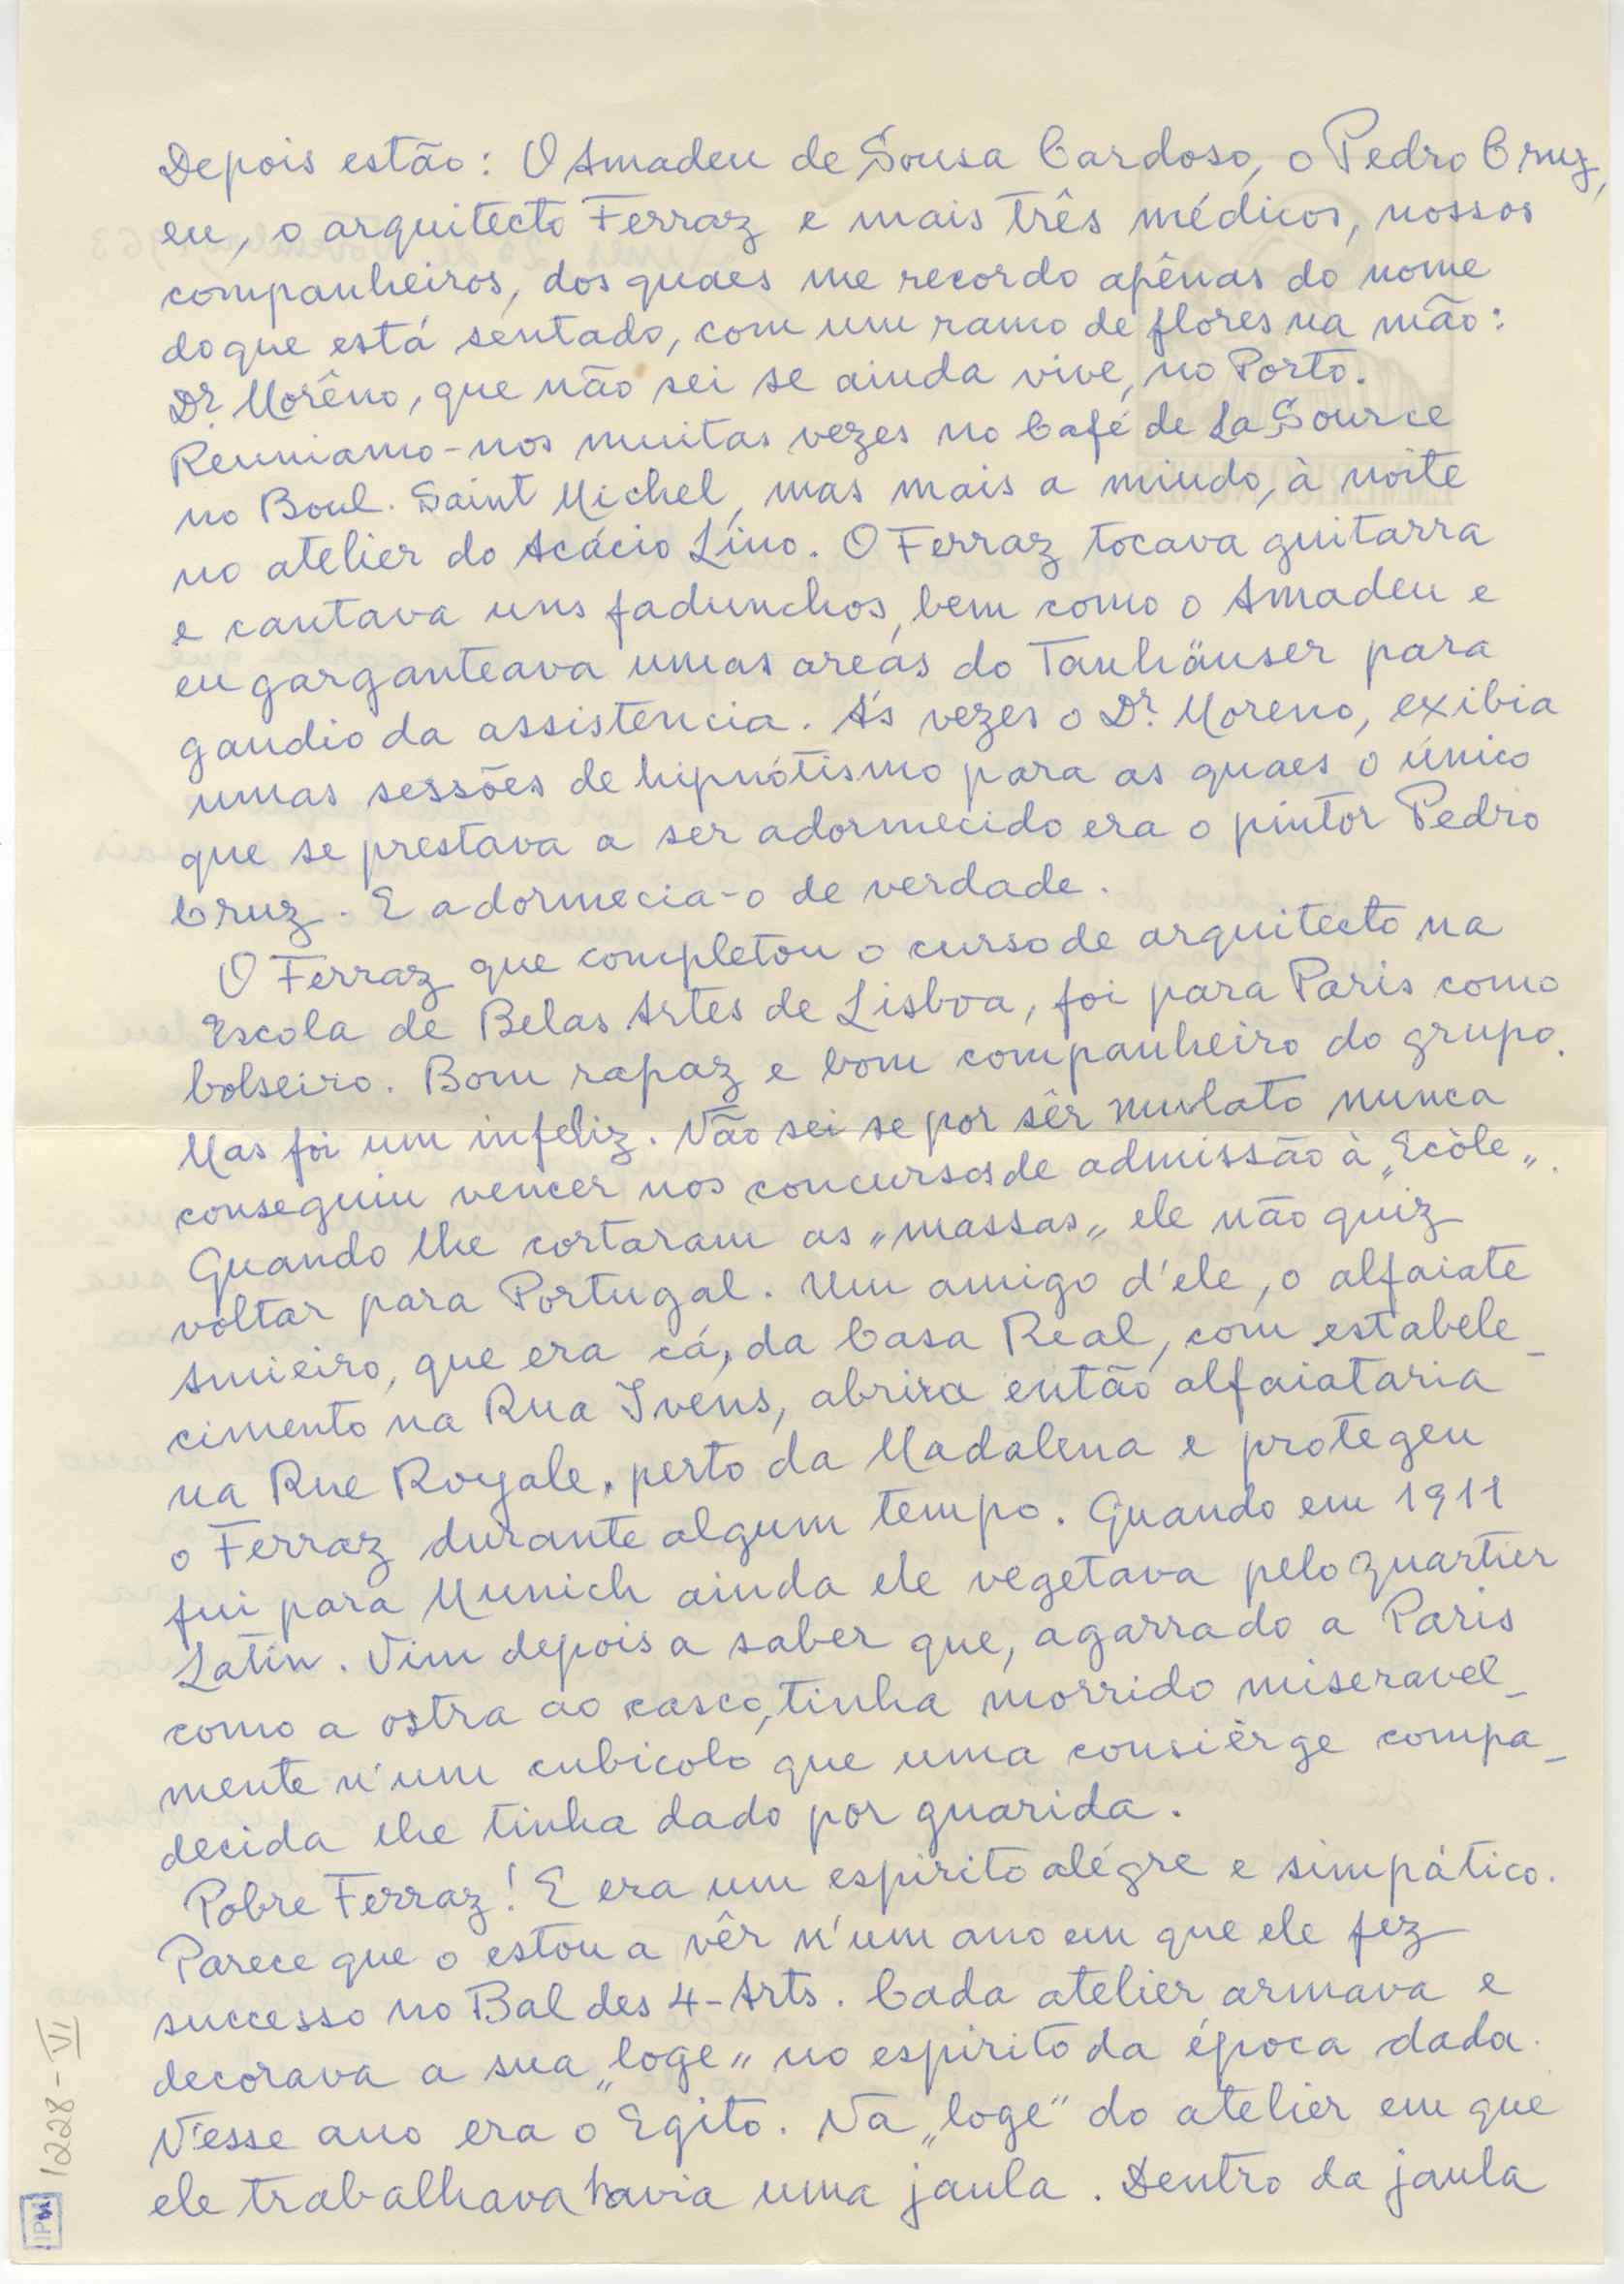 Depois estão: O Amadeu de Sousa Cardoso, o Pedro Cruz,
eu, o arquitecto Ferraz e mais três médicos, nossos
companheiros, dos quaes me recordo apênas do nome
do que está sentado, com um ramo de flores na mão:
Dr. Morêno, que não sei se ainda vive, no Porto.
Reuniamo-nos muitas vezes no Café de La Source
no Boul. Saint Michel, mas mais a miudo, à noite
no atelier do Acácio Lino. O Ferraz tocava guitarra
e cantava uns fadunchos, bem como o Amadeu e
eu garganteava umas areas do Tanhäuser para
gaudio da assistencia. Ás vezes o Dr. Moreno, exibia
umas sessões de hipnótismo para as quaes o único
que se prestava a ser adormecido era o pintor Pedro
Cruz. E adormecia-o de verdade.
O Ferraz que completou o curso de arquitecto na
Escola de Belas Artes de Lisboa, foi para Paris como
bolseiro. Bom rapaz e bom companheiro do grupo.
Mas foi um infeliz. Não sei se por sêr mulato nunca
conseguiu vencer nos concursos de admissão à „Ecòle„.
Quando lhe cortaram as „massas„ ele não quiz
voltar para Portugal. Um amigo d'ele, o alfaiate
Amieiro, que era cá, da Casa Real, com estabele-
cimento na Rua Ivens, abrira então alfaiataria
na Rue Royale, perto da Madalena e protegeu
o Ferraz durante algum tempo. Quando em 1911
fui para Munich ainda ele vegetava pelo Quartier
Latin. Vim depois a saber que, agarrado a Paris
como a ostra ao casco, tinha morrido miseravel-
mente n'um cubicolo que uma consièrge compa-
decida lhe tinha dado por guarida.
Pobre Ferraz! E era um espirito alégre e simpático.
Parece que o estou a vêr n'um ano em que ele fez
successo no Bal des 4-Arts. Cada atelier armava e
decorava a sua „loge" no espirito da época dada.
N'esse ano era o Egito. Na „loge" do atelier em que
ele trabalhava havia uma jaula. Dentro da jaula
1228-VI